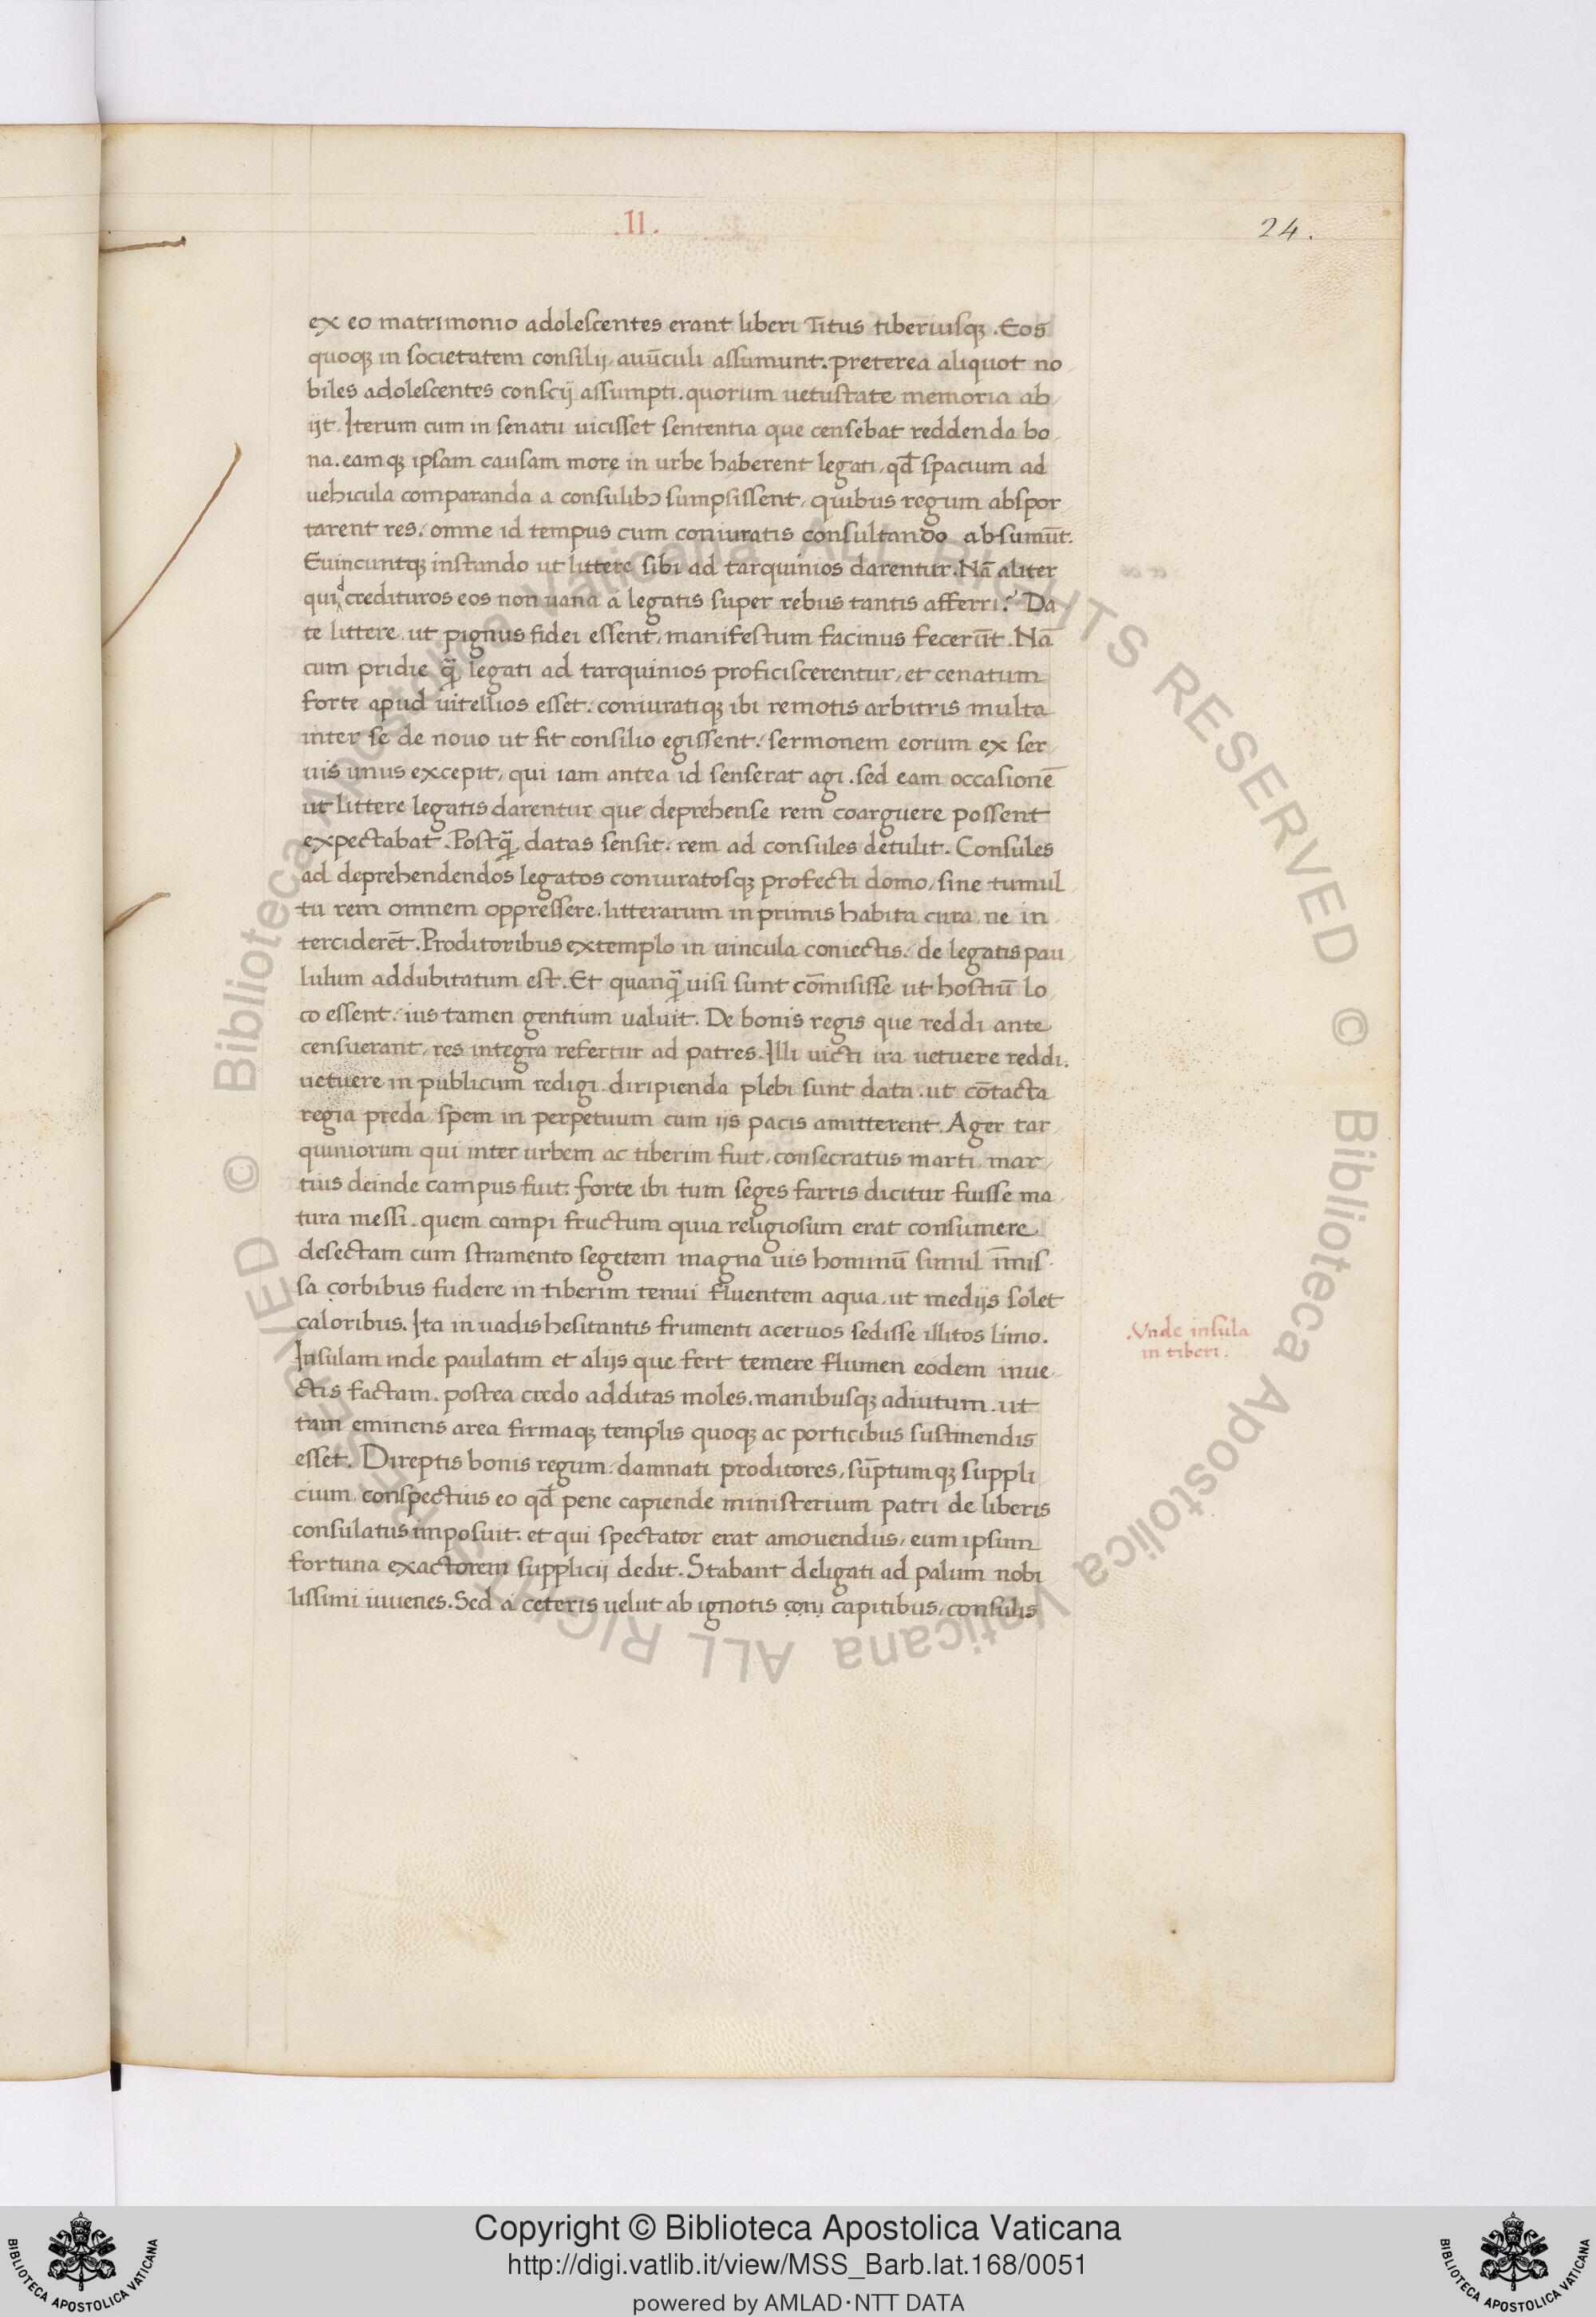 .II.
24.
ex eo matrimonio adolescentes erant liberi Titus tiberiusqꝫ. Eos
quoqꝫ in societatem consilij auūculi assumunt. preterea aliquot no
biles adolescentes conscij assumpti. quorum uetustate memoria ab
ijt. Iterum cum in senatu uicisset sententia que censebat reddenda bo
na. eamqꝫ ipsam causam morę in urbe haberent legati, qd̄ spacium ad
uehicula comparanda a consulibꝫ sumpsissent, quibus regum abspor
tarent res. omne id tempus cum coniuratis consultando absumūt.
Euincuntqꝫ instando ut littere sibi ad tarquinios darentur. Nā aliter
qui d credituros eos non uana a legatis super rebus tantis afferri? Da
te littere. ut pignus fidei essent, manifestum facinus fecerūt. Nā
cum pridie q̃ legati ad tarquinios proficiscerentur, et cenatum
forte apud uitellios esset. coniuratiqꝫ ibi remotis arbitris multa
inter se de nouo ut fit consilio egissent. sermonem eorum ex ser
uis unus excepit, qui iam antea id senserat agi. sed eam occasionē
ut littere legatis darentur que deprehense rem coarguere possent
expectabat. Postq̃ datas sensit. rem ad consules detulit. Consules
ad deprehendendos legatos coniuratosqꝫ profecti domo, sine tumul
tu rem omnem oppressere. litterarum in primis habita cura, ne in
terciderēt. Proditoribus extemplo in uincula coniectis. de legatis pau
lulum addubitatum est. Et quanq̃ uisi sunt cōmisisse ut hostiū lo
co essent. ius tamen gentium ualuit. De bonis regis que reddi ante
censuerant, res integra refertur ad patres. Illi uicti ira uetuere reddi.
uetuere in publicum redigi. diripienda plebi sunt data. ut cōtacta
regia preda spem in perpetuum cum ijs pacis amitterent. Ager tar
quiniorum qui inter urbem ac tiberim fuit, consecratus marti. mar
tius deinde campus fuit. forte ibi tum seges farris dicitur fuisse ma
tura messi. quem campi fructum quia religiosum erat consumere
desectam cum stramento segetem magna uis hominū simul īmis
sa corbibus fudere in tiberim tenui fluentem aqua. ut medijs solet
caloribus. Ita in uadis hesitantis frumenti aceruos sedisse illitos limo.
Insulam inde paulatim et alijs que fert temere flumen eodem inue
ctis factam. postea credo additas moles. manibusqꝫ adiutum. ut
tam eminens area firmaqꝫ templis quoqꝫ ac porticibus sustinendis
esset. Direptis bonis regum, damnati proditores, sūptumqꝫ suppli
cium. conspectius eo qd̄ pene capiende ministerium patri de liberis
consulatus imposuit. et qui spectator erat amouendus, eum ipsum
fortuna exactorem supplicij dedit. Stabant deligati ad palum nobi
lissimi iuuenes. Sed a ceteris uelut ab ignotis coni capitibus, consulis
.Vnde insula
in tiberi.
© Biblioteca Apostolica Vaticana ALL RIGHTS RESERVED © Biblioteca Apostolica Vaticana ALL RIGHTS RESERVED
Copyright © Biblioteca Apostolica Vaticana
http://digi.vatlib.it/view/MSS_Barb.lat.168/0051
powered by AMLAD·NTT DATA
BIBLIOTECA APOSTOLICA VATICANA
BIBLIOTECA APOSTOLICA VATICANA